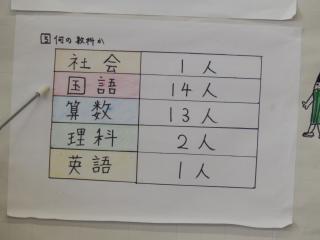 5 何の教科か
社会 1人
国語 14人
算数 13人
理科 2人
英語 1人